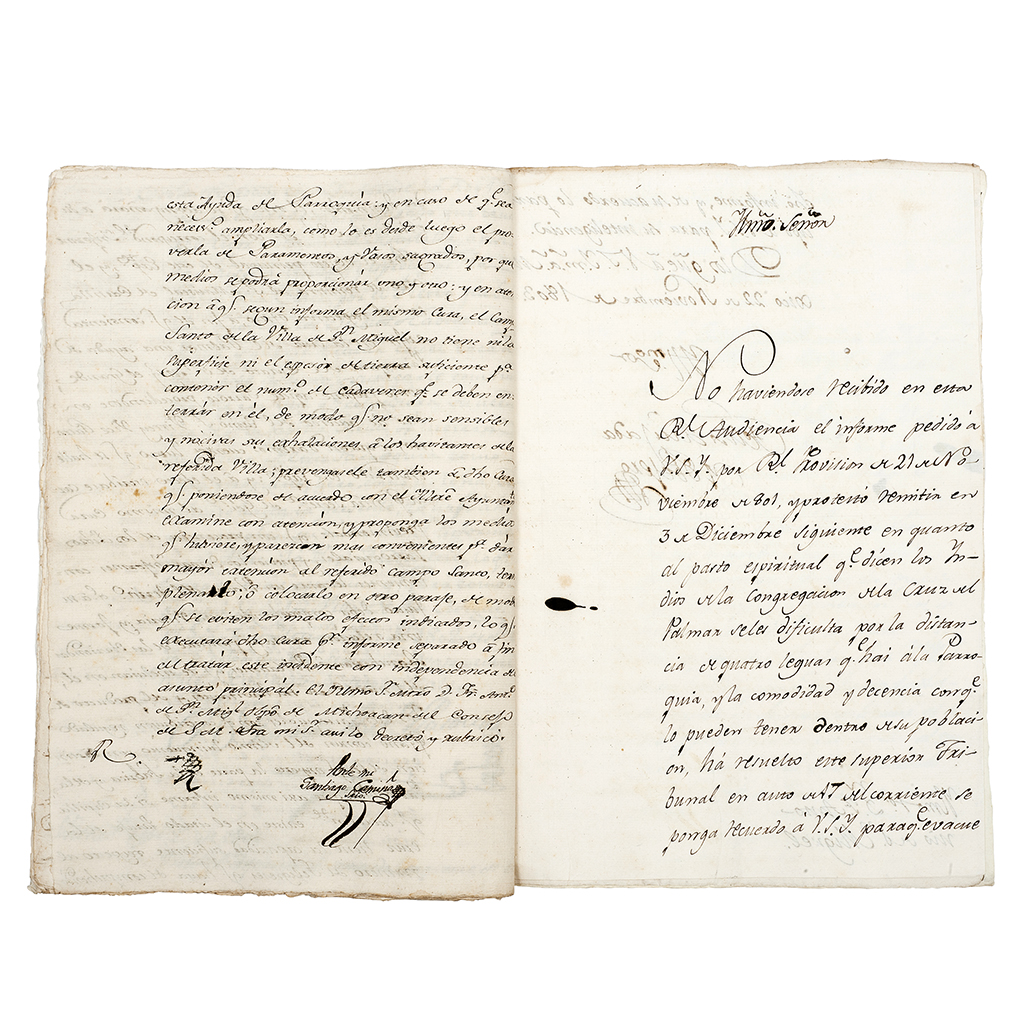 esta Ayuda de Parroquia: y en caso de qe. sea
neceso. ampliarla, como lo es desde luego el pro
verla de Paramentos, y Vasos sagrados, por que
medios se podrá proporcionar uno y otro: y en aten
cion á qe. segun informa el mismo Cura, el Cam
Santo de la Villa de Sn. Miguel no tiene ni la
superficie ni el espesor de tierra suficiente pa.
contener el numo. de cadaveres qe. se deben en
terrar en el, de modo qe. no sean sensibles
y nocivas sus exhalaciones á los havitantes de la
referida Villa; prevengasele tambien á dho Cura
qe. poniendose de acuerdo con el Illtre Ayuntam
examine con atencion, y proponga los medios
qe. huviere, y parezcan mas convenientes pa. dar
mayor extencion al referido Campo Santo, ter
plenarlo, ó colocarlo en otro paraje, de mod
qe. se eviten los malos efectos indicados, lo qe.
executará dho Cura pr. informe separado á fin
de tratar este incidente con independencia del
asunto principal. El Illmo Sr. Mtro D. Fr. Anto.
de Sn. Migl. Obpo. de Michoacan del Consejo
de S.M. &ra mi Sr. asi lo decretó y rubricó.
R.
Ante mi
Santiago Camiña
Srio.
Illmo. Señor
No haviendose recibido en esta
Rl. Audiencia el informe pedido á
V.S.Y. por Rl. Provision de 21 de No-
viembre de 801, y protextó remitir en
3 de Diciembre siguiente en quanto
al pasto espiritual qe. dicen los Yn-
dios de la Congregacion de la Cruz del
Palmar se les dificulta por la distan-
cia de quatro leguas qe. hai á la Parro-
quia, y la comodidad y decencia con qe.
lo pueden tener dentro de su poblaci-
on, há resuelto este superior Tri-
bunal en auto de 17 del corriente se
ponga recuerdo á V.S.Y. para qe. evacue